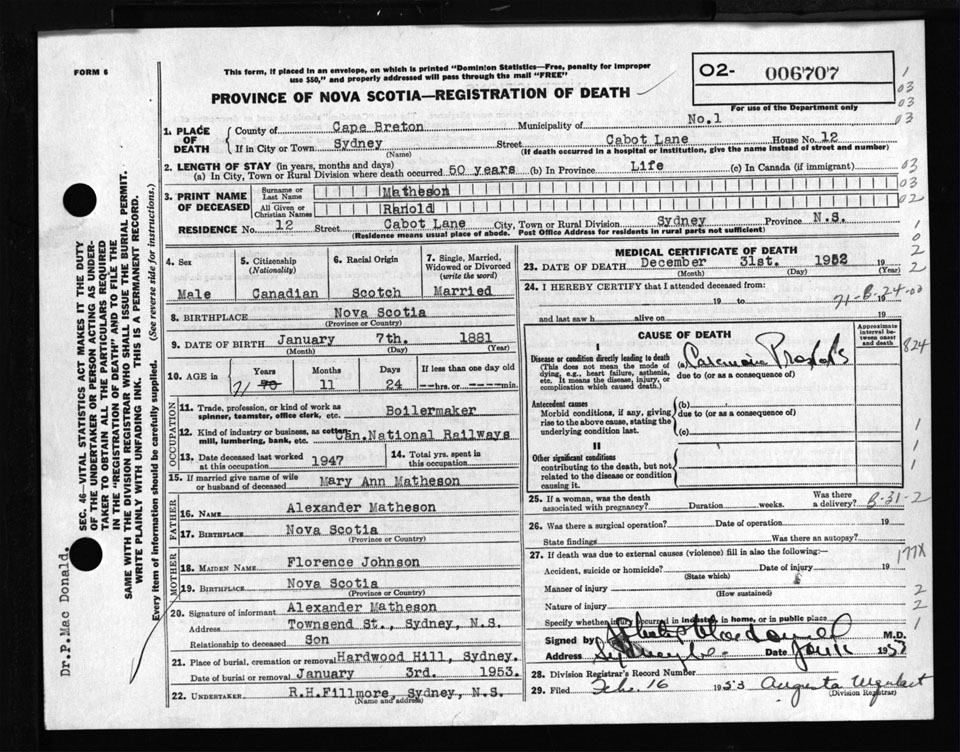 FORM 6
This form, if placed in an envelope, on which is printed "Dominion Statistics—Free, penalty for improper
use $50," and properly addressed will pass through the mail "FREE"
PROVINCE OF NOVA SCOTIA—REGISTRATION OF DEATH
02- 006707
For use of the Department only
1. PLACE OF DEATH
County of Cape Breton Municipality of No.1
If in City or Town Sydney Street Cabot Lane House No. 12
(Name) (If death occurred in a hospital or institution, give the name instead of street and number)
2. LENGTH OF STAY (in years, months and days)
(a) In City, Town or Rural Division where death occurred 50 years (b) In Province Life (c) In Canada (if immigrant)
3. PRINT NAME OF DECEASED
Surname or Last Name Matheson
All Given or Christian Names Ranold
RESIDENCE No. 12 Street Cabot Lane City, Town or Rural Division Sydney Province N.S.
(Residence means usual place of abode. Post Office Address for residents in rural parts not sufficient)
4. Sex Male
5. Citizenship (Nationality) Canadian
6. Racial Origin Scotch
7. Single, Married, Widowed or Divorced (write the word) Married
8. BIRTHPLACE Nova Scotia
(Province or Country)
9. DATE OF BIRTH January 7th. 1881
(Month) (Day) (Year)
10. AGE in Years Months Days If less than one day old
71 70 11 24 --hrs. or ----min.
OCCUPATION
11. Trade, profession, or kind of work as spinner, teamster, office clerk, etc. Boilermaker
12. Kind of industry or business, as cotton mill, lumbering, bank, etc. Can.National Railways
13. Date deceased last worked at this occupation 1947
14. Total yrs. spent in this occupation
15. If married give name of wife or husband of deceased Mary Ann Matheson
FATHER
16. NAME Alexander Matheson
17. BIRTHPLACE Nova Scotia
(Province or Country)
MOTHER
18. MAIDEN NAME Florence Johnson
19. BIRTHPLACE Nova Scotia
(Province or Country)
20. Signature of informant Alexander Matheson
Address Townsend St., Sydney, N.S.
Relationship to deceased Son
21. Place of burial, cremation or removal Hardwood Hill, Sydney.
Date of burial or removal January 3rd. 1953.
22. UNDERTAKER R.H.Fillmore, Sydney, N.S.
(Name and address)
MEDICAL CERTIFICATE OF DEATH
23. DATE OF DEATH December 31st. 1952
(Month) (Day) (Year)
24. I HEREBY CERTIFY that I attended deceased from:
19 to 19
71-B-24-00
and last saw h alive on 19
CAUSE OF DEATH
Approximate interval between onset and death
I
Disease or condition directly leading to death
(This does not mean the mode of dying, e.g., heart failure, asthenia, etc. It means the disease, injury, or complication which caused death.)
(a)
due to (or as a consequence of)
Antecedent causes
Morbid conditions, if any, giving rise to the above cause, stating the underlying condition last.
(b)
due to (or as a consequence of)
(c)
II
Other significant conditions
contributing to the death, but not related to the disease or condition causing it.
25. If a woman, was the death associated with pregnancy? Duration weeks. Was there a delivery? B-31-2
26. Was there a surgical operation? Date of operation 19
State findings Was there an autopsy?
27. If death was due to external causes (violence) fill in also the following:—
Accident, suicide or homicide? Date of injury 19
(State which)
Manner of injury
(How sustained)
Nature of injury
Specify whether injury occurred in industry, in home, or in public place
Signed by M.D.
Address Sydney Date
28. Division Registrar's Record Number
29. Filed Feb. 16 1953 Augusta Urquhart
(Division Registrar)
1
03
03
03
03
03
02
1
0
2
2
824
1
1
1
177X
2
2
1
SEC. 46—VITAL STATISTICS ACT MAKES IT THE DUTY
OF THE UNDERTAKER OR PERSON ACTING AS UNDER-
TAKER TO OBTAIN ALL THE PARTICULARS REQUIRED
IN THE "REGISTRATION OF DEATH" AND TO FILE THE
SAME WITH THE DIVISION REGISTRAR WHO SHALL ISSUE THE BURIAL PERMIT.
WRITE PLAINLY WITH UNFADING INK. THIS IS A PERMANENT RECORD.
Every item of information should be carefully supplied. (See reverse side for instructions.)
Dr.P.Mac Donald.